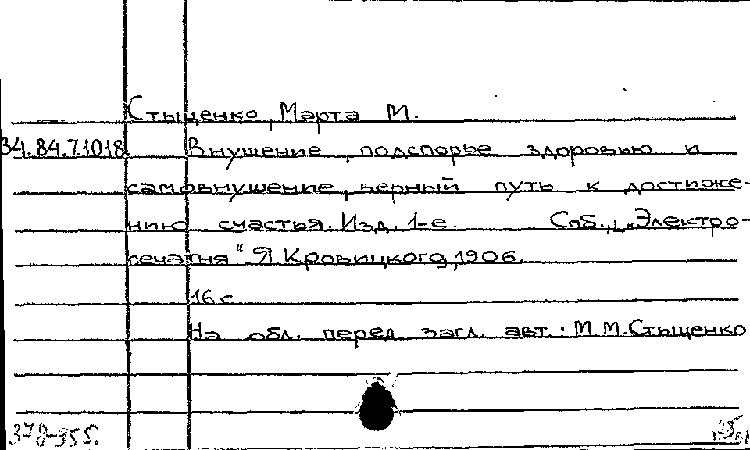 Стыценко, Марта М.
34.84.7.1018 Внушение, подспорье здоровью и
самовнушение, верный путь к достиже-
нию счастья. Изд. 1-е. Спб., „Электро-
печатня" Я. Кровицкого, 1906.
16 с.
На обл. перед загл. авт.: М.М.Стыценко
378-955.